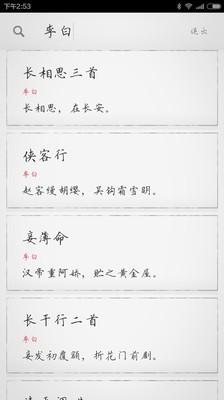 下午2:53
李白
退出
长相思三首
李白
长相思，在长安。
侠客行
李白
赵客缦胡缨，吴钩霜雪明。
妾薄命
李白
汉帝重阿娇，贮之黄金屋。
长干行二首
李白
妾发初覆额，折花门前剧。